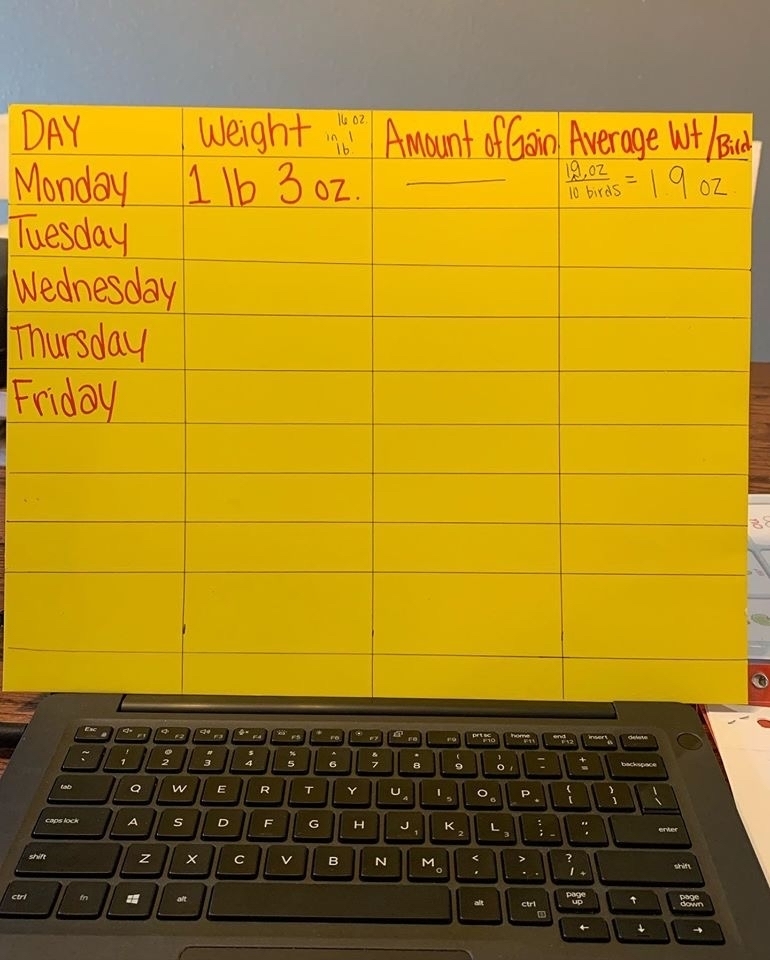 DAY Weight 16 oz. in 1 lb. Amount of Gain Average Wt/Bird
Monday 1 lb 3 oz. 19.oz / 10 birds = 1.9 oz.
Tuesday
Wednesday
Thursday
Friday
Esc F1 F2 F3 F4 F5 F6 F7 F8 F9 prt sc F10 home F11 end F12 insert delete
~ ` ! 1 @ 2 # 3 $ 4 % 5 ^ 6 & 7 * 8 ( 9 ) 0 / _ - + = backspace
tab Q W E R T Y U 4 I 5 O 6 P * { [ } ] | \
caps lock A S D F G H J 1 K 2 L 3 : ; - " ' enter
shift Z X C V B N M 0 < , > . ? / + shift
ctrl fn alt alt ctrl page up ↑ page down
← ↓ →